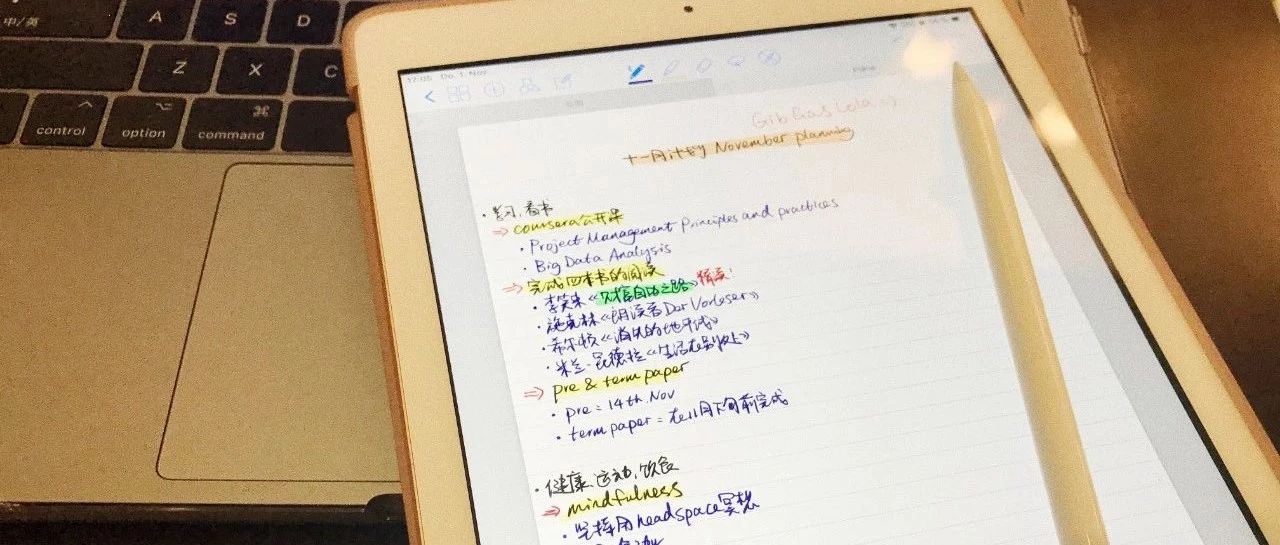 中/英
A S D
Z X C
control option command
12:05 Do. 1. Nov
Gib Gas Lola
十一月计划 November planning
· 学习、看书
⇒ coursera公开课
· Project Management Principles and practices
· Big Data Analysis
⇒ 完成四本书的阅读
· 李笑来《财富自由之路》精读!
· 施克林《朗读者 Der Vorleser》
· 希尔顿《消失的地平线》
· 米兰·昆德拉《生活在别处》
⇒ pre & term paper
· pre = 14th Nov
· term paper = 在11月下旬前完成
· 健康、运动、饮食
⇒ mindfulness
· 坚持用headspace冥想